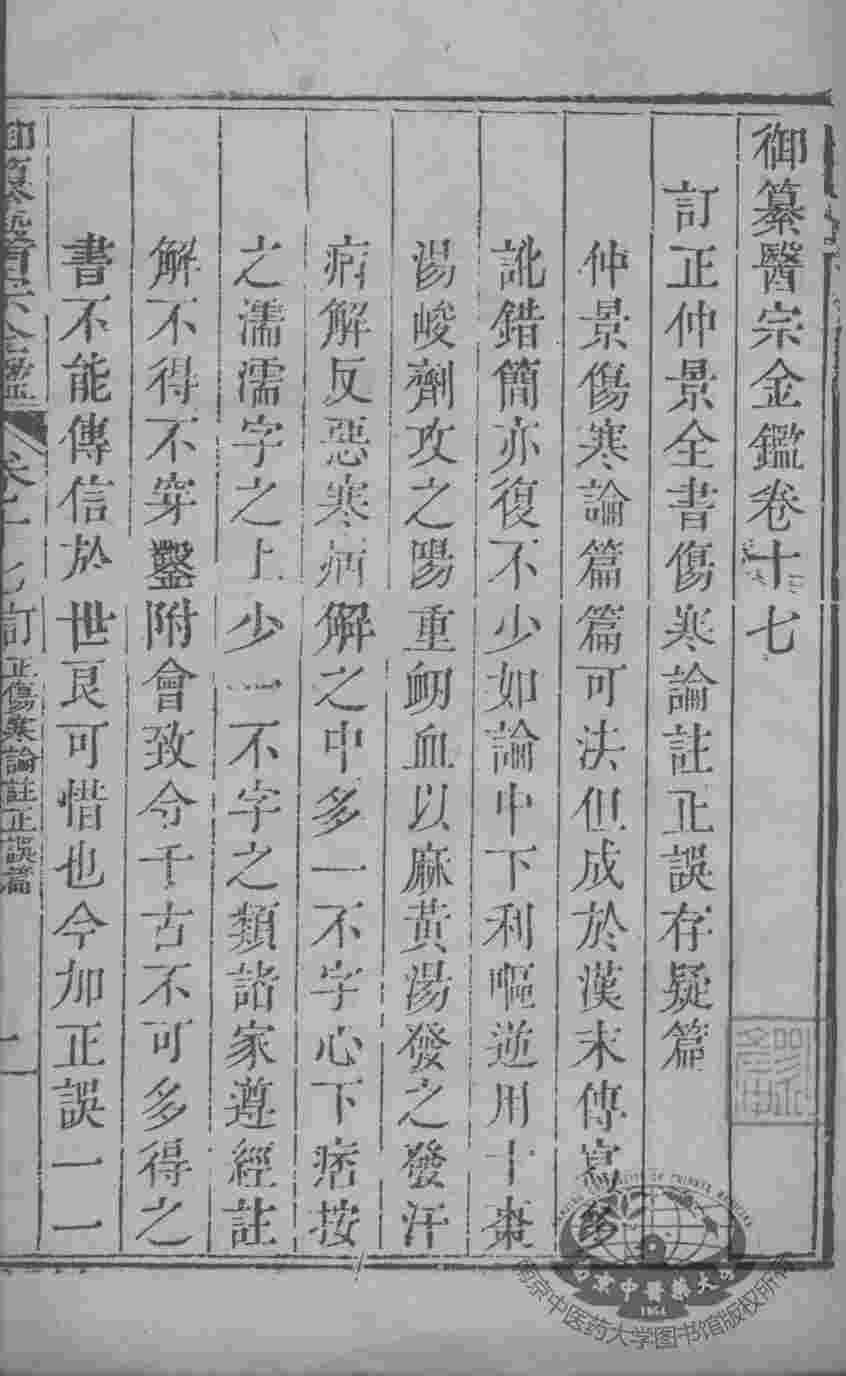 御纂醫宗金鑑卷十七
訂正仲景全書傷寒論註正誤存疑篇
仲景傷寒論篇篇可法但成於漢末傳寫多
訛錯簡亦復不少如論中下利嘔逆用十棗
湯峻劑攻之陽重衂血以麻黃湯發之發汗
病解反惡寒病解之中多一不字心下痞按
之濡濡字之上少一不字之類諸家遵經註
解不得不穿鑿附會致令千古不可多得之
書不能傳信於世良可惜也今加正誤一一
御纂醫宗金鑑 卷十七 訂正傷寒論註正誤篇 一
南京中醫藥大學
1954
南京中医药大学图书馆版权所有